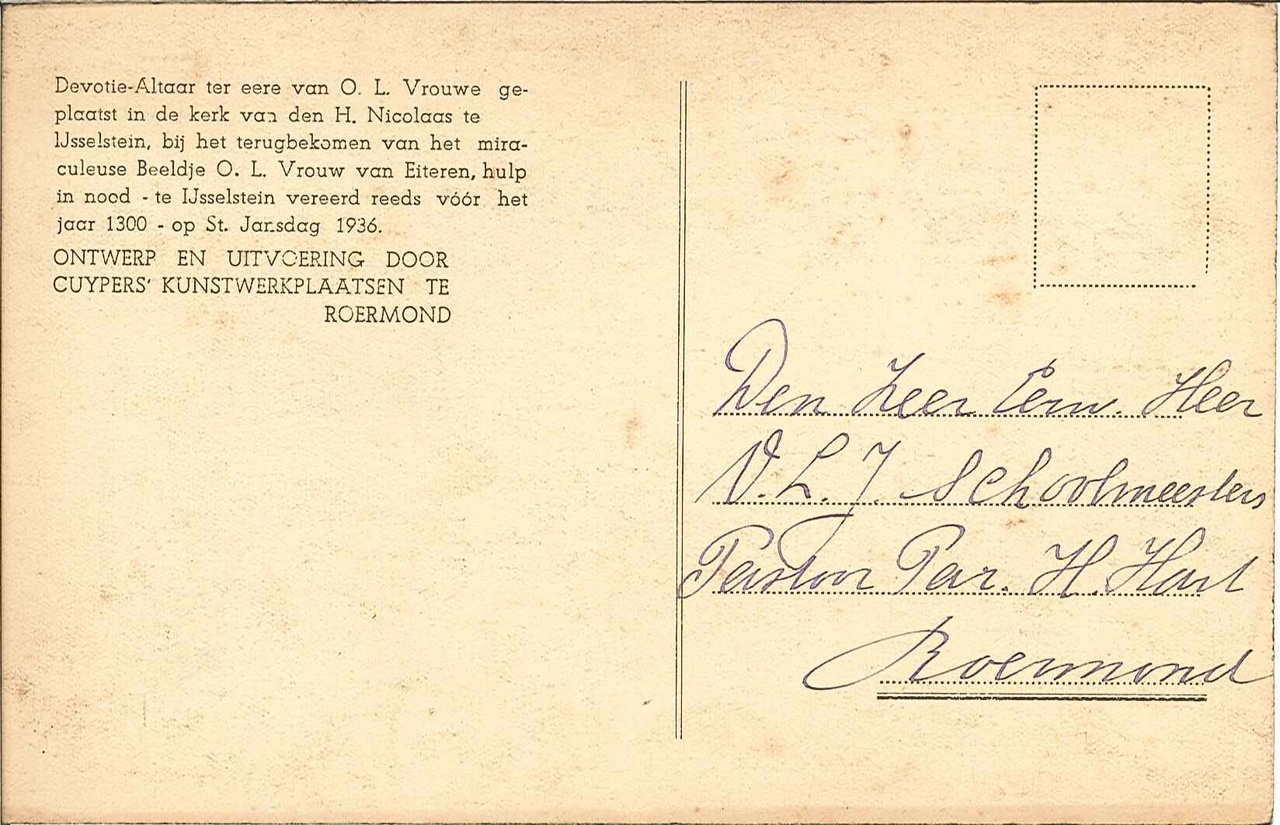 Devotie-Altaar ter eere van O. L. Vrouwe ge-
plaatst in de kerk van den H. Nicolaas te
IJsselstein, bij het terugbekomen van het mira-
culeuse Beeldje O. L. Vrouw van Eiteren, hulp
in nood - te IJsselstein vereerd reeds vóór het
jaar 1300 - op St. Jansdag 1936.
ONTWERP EN UITVOERING DOOR
CUYPERS' KUNSTWERKPLAATSEN TE
ROERMOND
Den Zeer Eerw. Heer
V. L. J. Schoolmeesters
Pastoor Par. H. Hart
Roermond